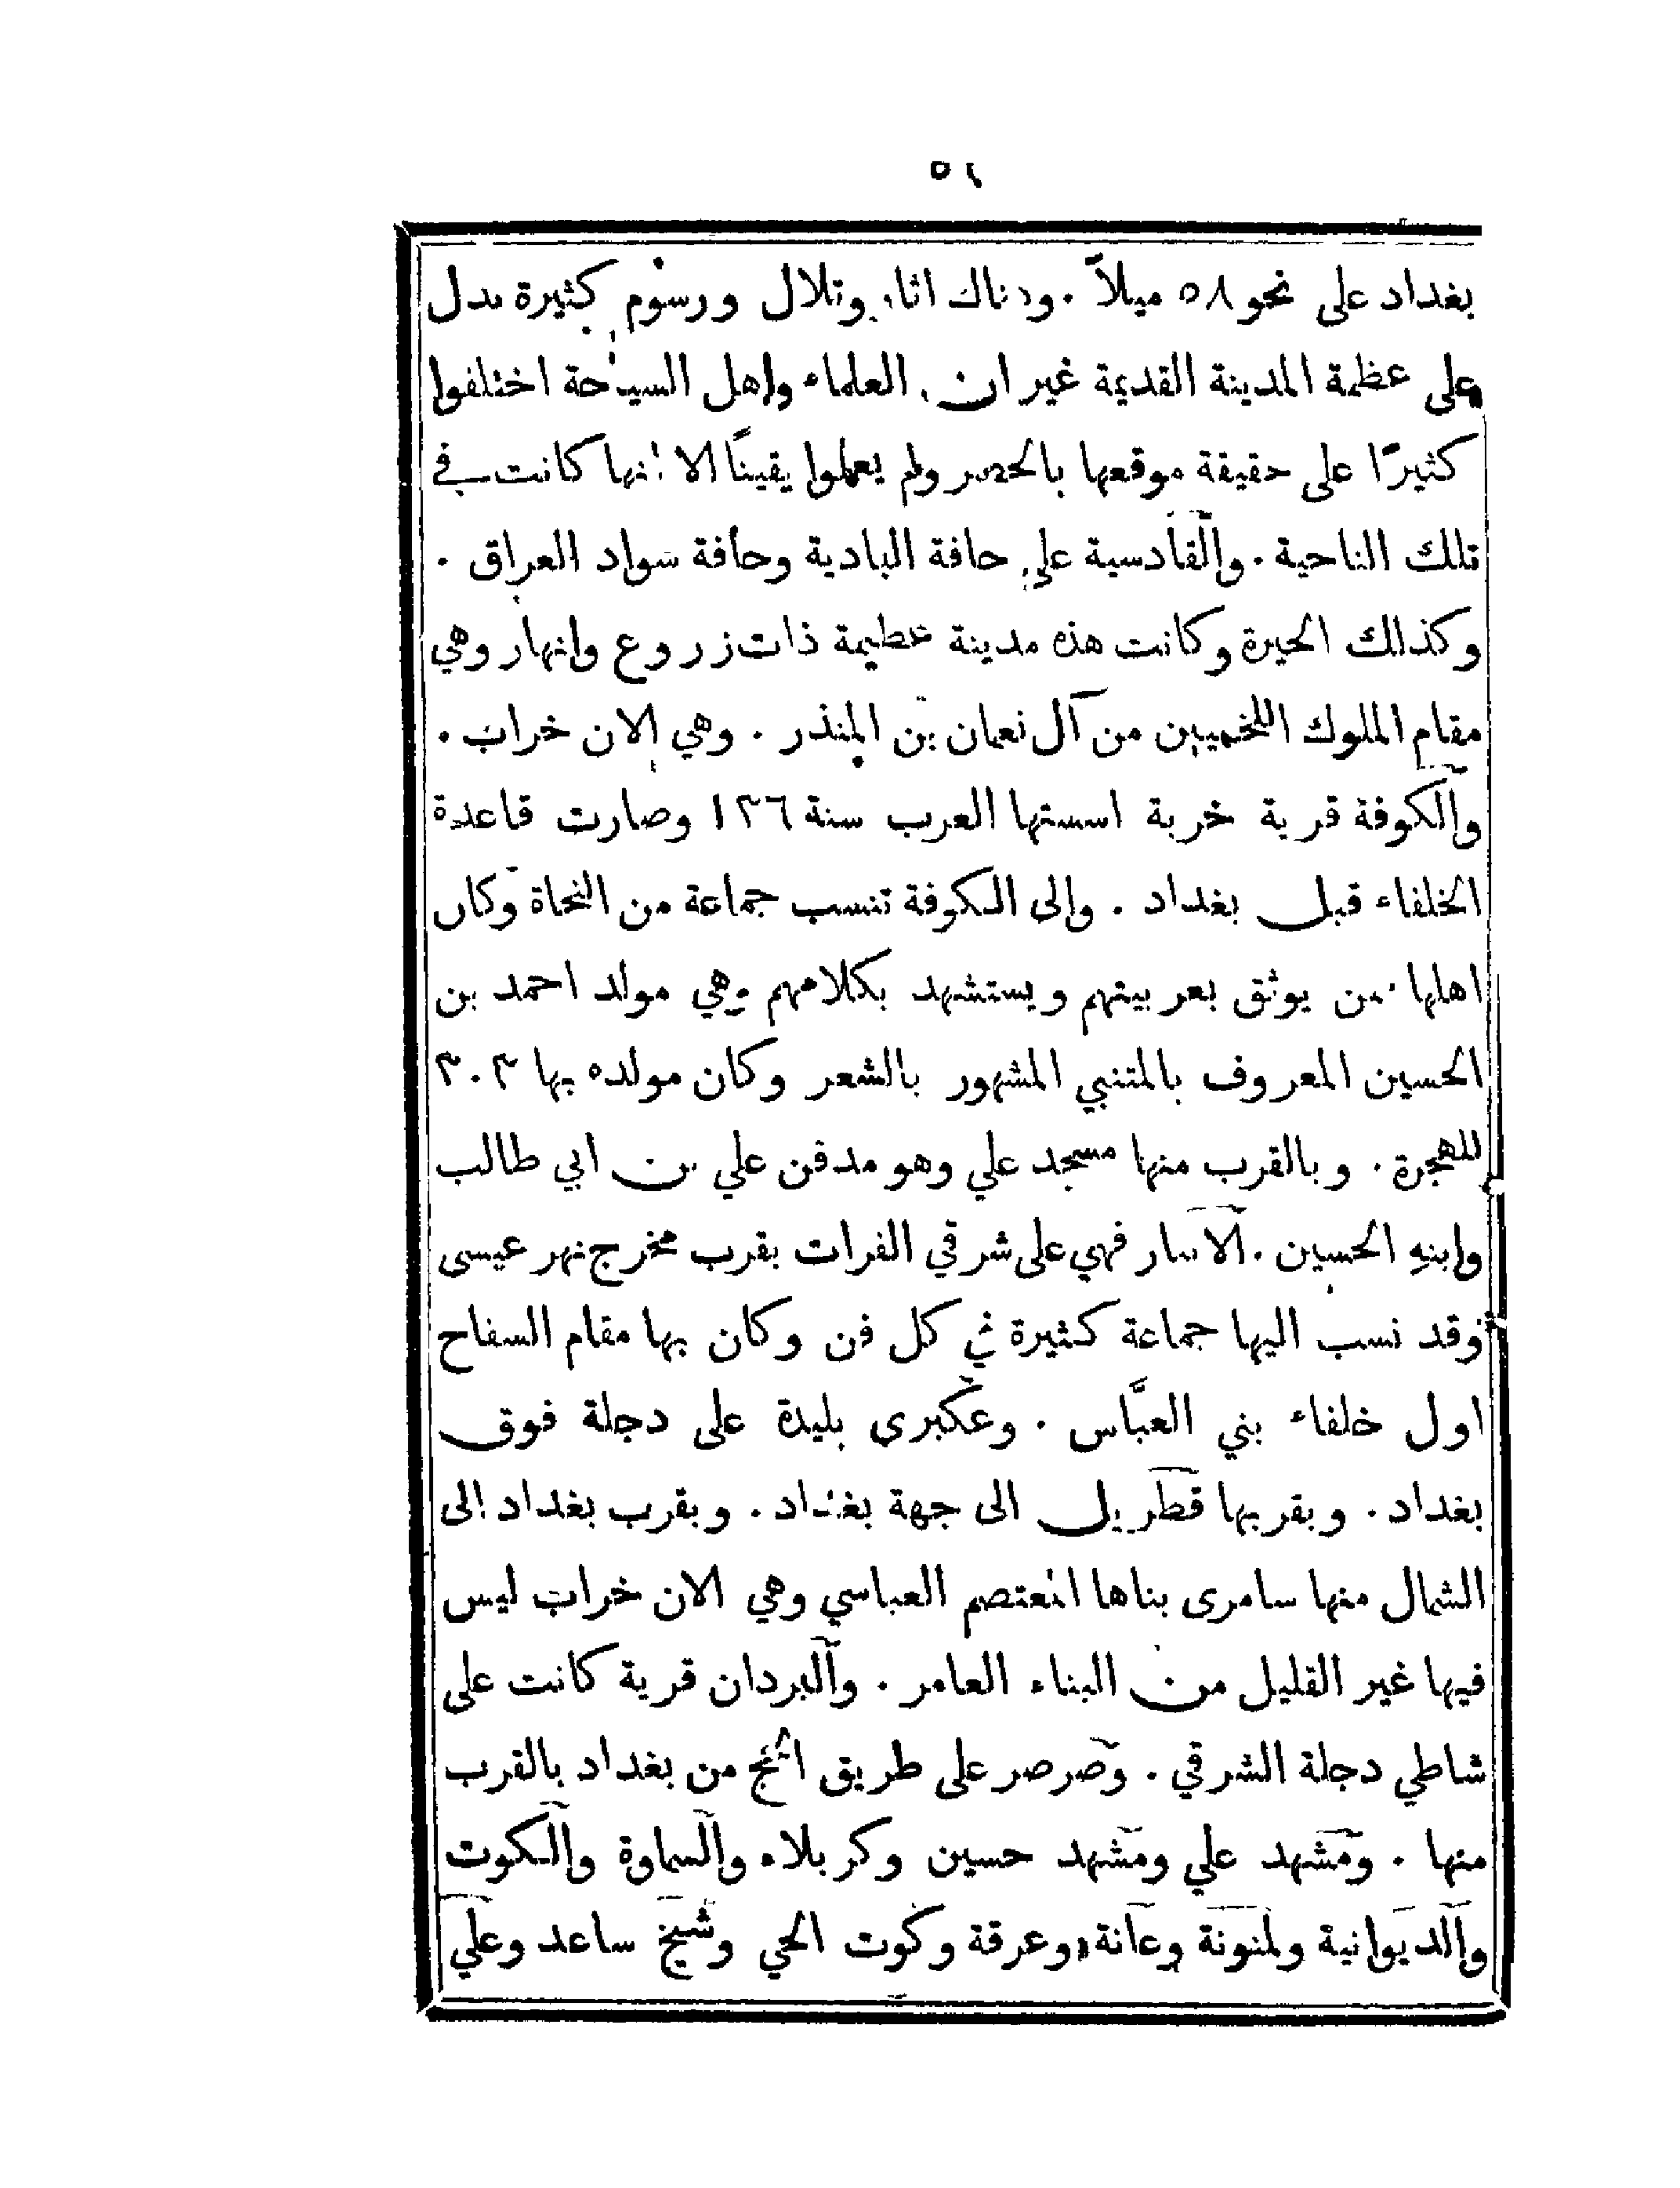 ٥٢
بغداد على نحو ٥٨ ميلاً . وهناك اثار وتلال ورسوم كثيرة تدل
على عظمة المدينة القديمة غير ان العلماء واهل السياحة اختلفوا
كثيرًا على حقيقة موقعها بالحصر ولم يعملوا يقينًا الا انها كانت في
تلك الناحية . والقادسية على حافة البادية وحافة سواد العراق .
وكذلك الحيرة وكانت هذه مدينة عظيمة ذات زروع وانهار وهي
مقام الملوك اللخميين من آل نعمان بن المنذر . وهي الان خراب .
والكوفة قرية خربة اسستها العرب سنة ١٣٦ وصارت قاعدة
الخلفاء قبل بغداد . والى الكوفة تنسب جماعة من النحاة وكان
اهلها ممن يوثق بعربيتهم ويستشهد بكلامهم وهي مولد احمد بن
الحسين المعروف بالمتنبي المشهور بالشعر وكان مولده بها ٣٠٣
للهجرة . وبالقرب منها مسجد علي وهو مدفن علي بن ابي طالب
وابنهِ الحسين . الانبار فهي على شرقي الفرات بقرب مخرج نهر عيسى
وقد نسب اليها جماعة كثيرة في كل فن وكان بها مقام السفاح
اول خلفاء بني العبَّاس . وعكبرى بليدة على دجلة فوق
بغداد . وبقربها قطربل الى جهة بغداد . وبقرب بغداد الى
الشمال منها سامرى بناها المعتصم العباسي وهي الان خراب ليس
فيها غير القليل من البناء العامر . والبردان قرية كانت على
شاطي دجلة الشرقي . وصرصر على طريق الحج من بغداد بالقرب
منها . ومشهد علي ومشهد حسين وكربلاء والسماوة والكوت
والديوانية ولمنونة وعانة وعرقة وكوت الحي وشيخ ساعد وعلي